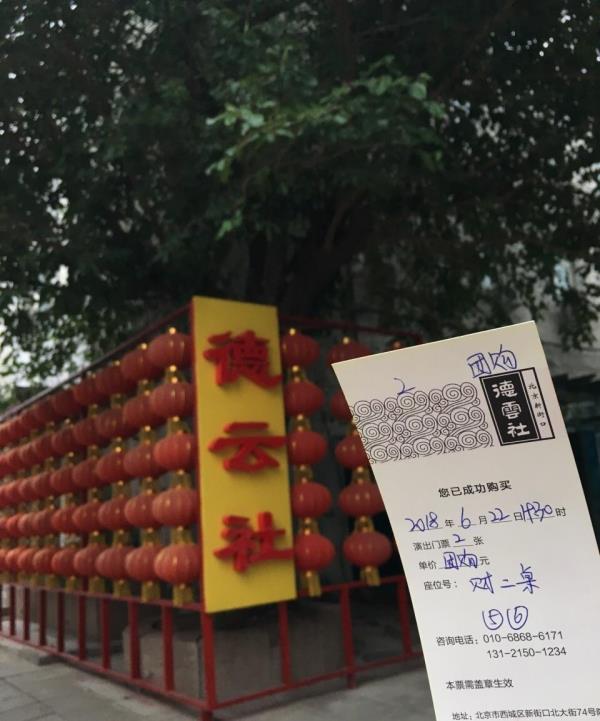 德云社
2
团购
德雲社
北京新街口
您已成功购买
2018年6月22日1930时
演出门票2张
单价团购元
座位号：财二桌
⑤⑥
咨询电话：010-6868-6171
131-2150-1234
本票需盖章生效
地址：北京市西城区新街口北大街74号